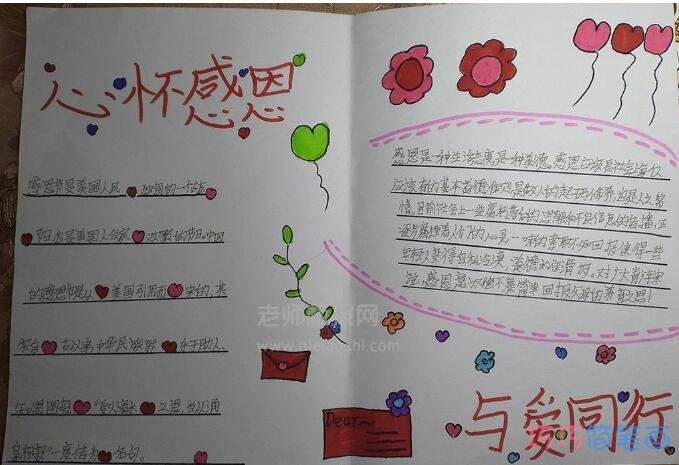 心怀感恩
感恩节是美国人民 独创的一个古
节 也是美国人合家 欢聚的节日。中国
的感恩节是从 美国引用而 来的，其
实自 古以来，中华民族就 乐于助人、
知恩图报 “受人滴水 之恩，当以涌
泉相报”一度传为 名句。
感恩是一种生活态度是一种美德，感恩应该是社会每个人
应该有的基本道德准则是做人的起码修养，也是人之常
情。目前社会上一些 的 和不良信息的传播，正
逐步腐蚀着人们的心灵，一味的索取不知回报使得一些
年轻人变得自私 ，道德 。对广大青少年来
说，感恩意 不是简单回报父母的养育之恩！
老师板报网
Dear~
与爱同行
巧巧简笔画